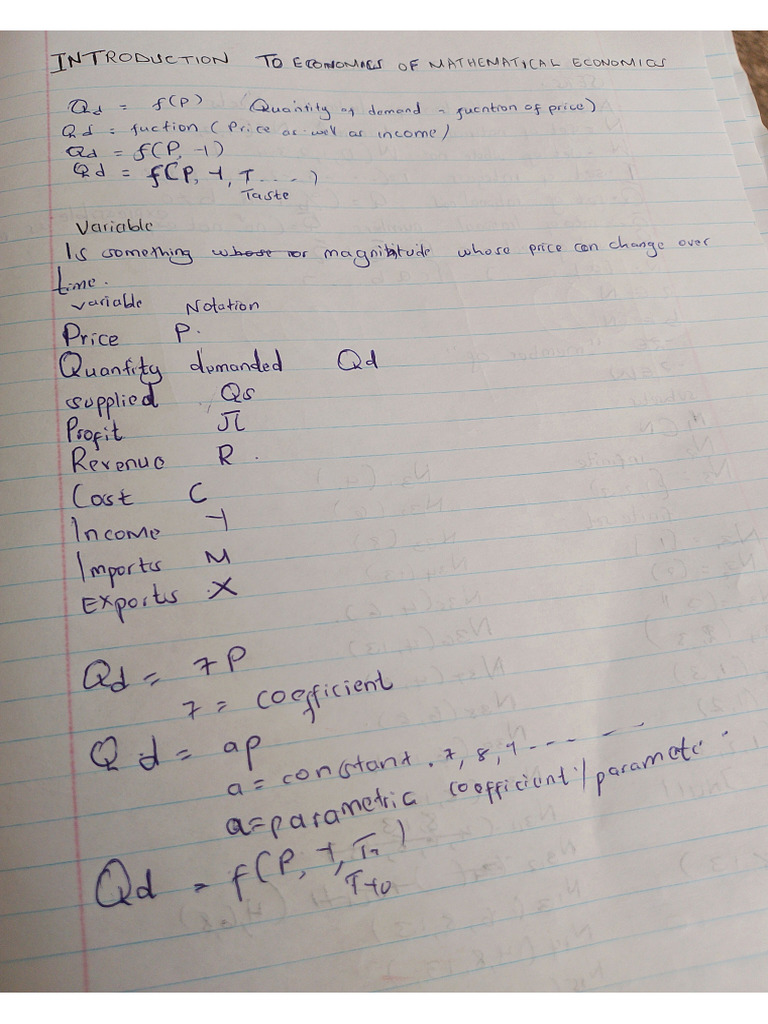 INTRODUCTION TO ECONOMICS OF MATHEMATICAL ECONOMICS
Qd = f(P) (Quainity of demand = fucntion of price)
Qd = fuction (Price as well as income)
Qd = f(P, Y)
Qd = f(P, Y, T....)
Taste
Variable
Is something whose or magnitude whose price can change over
time.
variable Notation
Price P.
Quantity demanded Qd
supplied ,, Qs
Profit π
Revenue R.
Cost C
Income Y
Imports M
Exports X
Qd = 7P
7 = coefficient
Qd = ap
a = constant. 7, 8, 9 ------
a = parametric coefficient / parameter
Qd = f(P, Y, T)